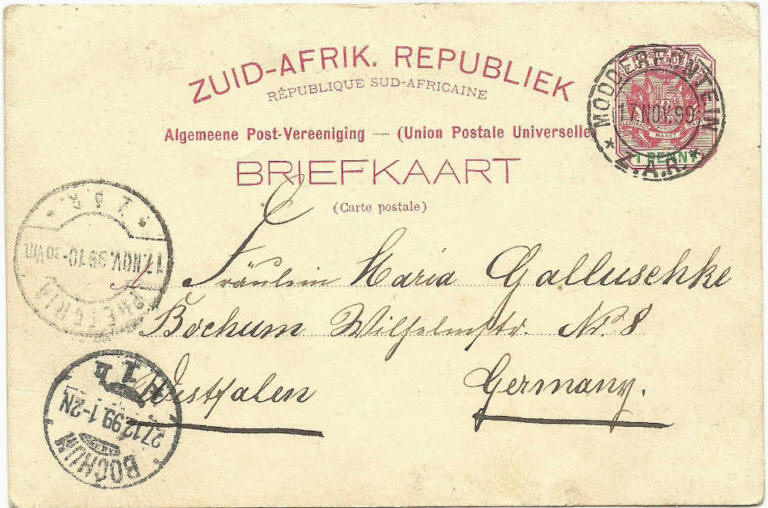 ZUID-AFRIK. REPUBLIEK
RÉPUBLIQUE SUD-AFRICAINE
Algemeene Post-Vereeniging — (Union Postale Universelle
BRIEFKAART
(Carte postale)
MODDERFONTEIN
17 NOV. 99
* Z.A.R. *
1 PENNY
* Z.A.R. *
17. NOV. 99 10-30 Vm.
PRETORIA
Fräulein Maria Galluschke
Bochum Wilhelmstr. Nr. 8
Westfalen Germany.
27.12.99. 1-2N
BOCHUM